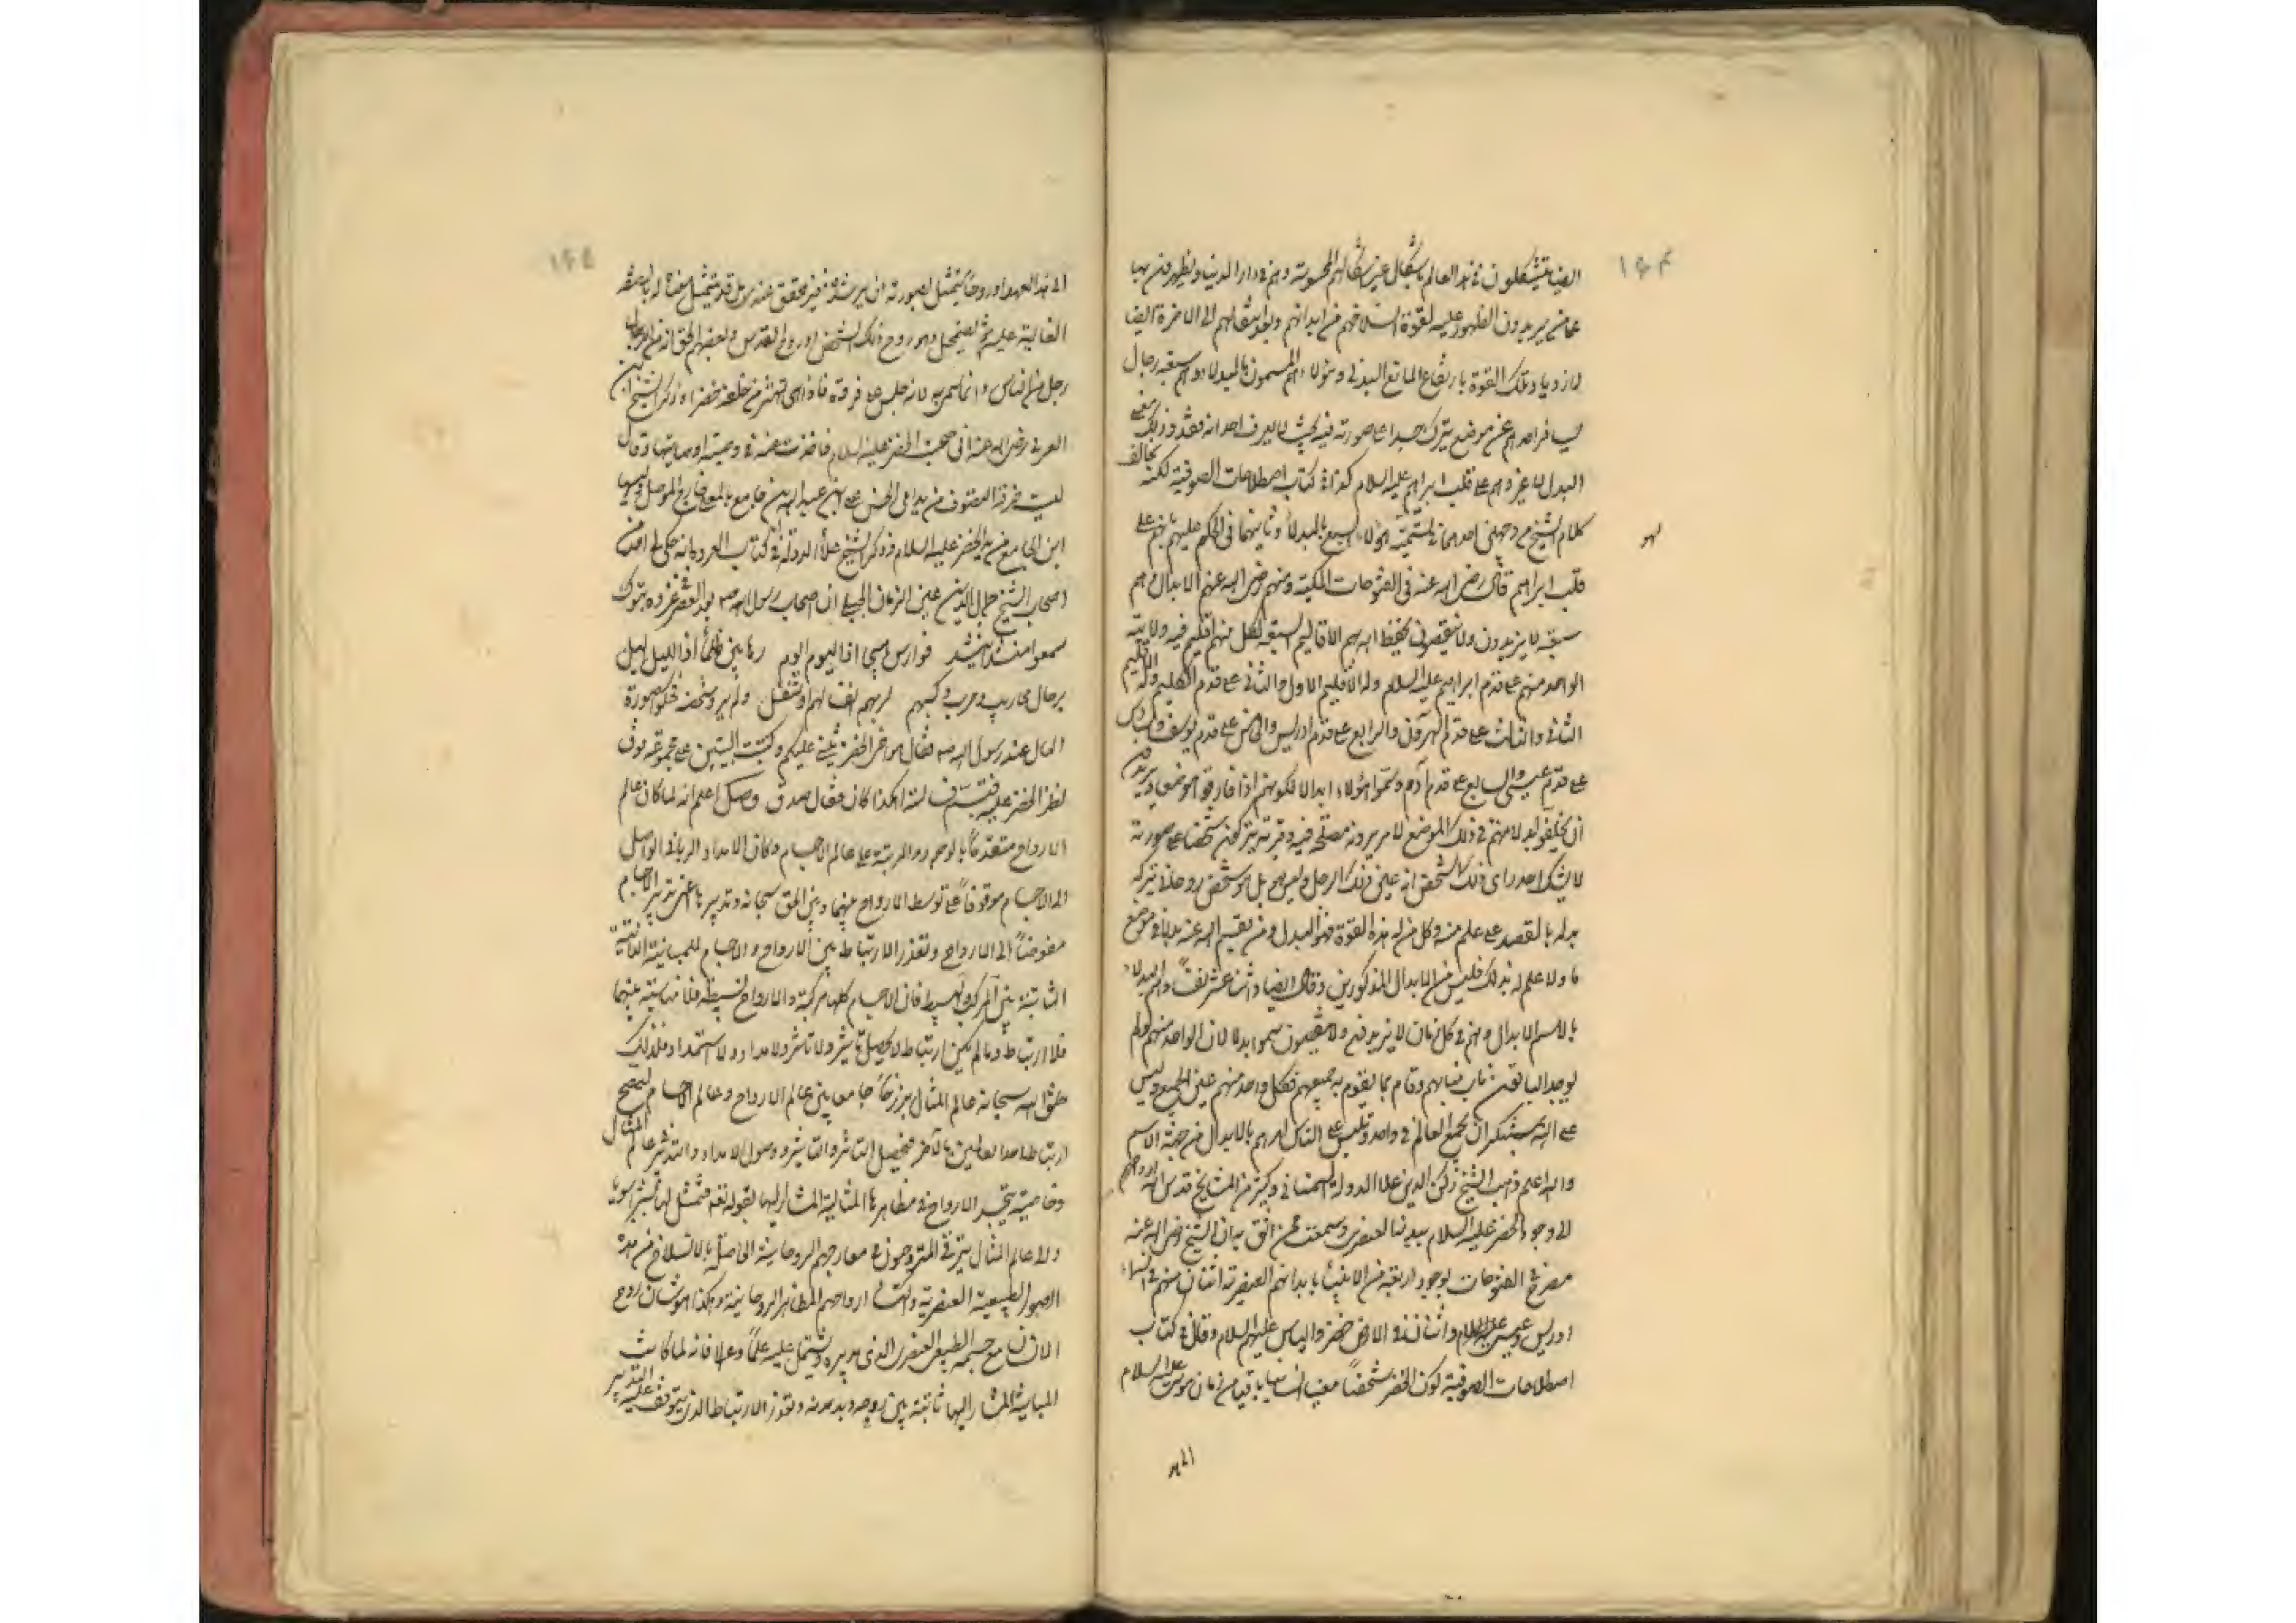 ١٦٤
ايضا يتشكلون في هذا العالم باشكال غير اشكالهم المحسوسة وهم في دار الدنيا ويظهرون بها
على من يريدون الظهور عليه لقوة انسلاخهم من ابدانهم وبعد انتقالهم الى الاخرة ايضا
لازدياد تلك القوة بارتفاع المانع البدني وهؤلاء هم المسمون بالبدلاء وهم سبعة رجال
يسافر احدهم عن موضع يترك جسدا على صورته فيه بحيث لا يعرف احد انه فقد وذلك معنى
البدل لا غير وهم على قلب ابراهيم عليه السلام كذا في كتاب اصطلاحات الصوفية لكنه يخالف
كلام الشيخ من وجهين احدهما في تسمية هؤلاء السبع بالبدلاء وثانيهما في الحكم عليهم بانهم على
قلب ابراهيم قال رضي الله عنه في الفتوحات المكية ومنهم رضي الله عنهم الابدال وهم
سبعة لا يزيدون ولا ينقصون يحفظ الله بهم الاقاليم السبعة لكل منهم اقليم فيه ولايته
الواحد منهم على قدم ابراهيم عليه السلام وله الاقليم الاول والثاني على قدم الكليم وله الاقليم
الثاني والثالث على قدم هرون والرابع على قدم ادريس والخامس على قدم يوسف والسادس
على قدم عيسى والسابع على قدم آدم وسموا هؤلاء ابدالا لكونهم اذا فارقوا موضعا ويريدون
ان يخلفوا بدلا منهم في ذلك الموضع لامر يرونه مصلحة فيه وقربة يتركون شخصا على صورته
لا يشك احد راى ذلك الشخص انه عين ذلك الرجل وليس هو بل هو شخص روحاني يتركه
بدله بالقصد على علم منه وكل من له هذه القوة فهو البدل ومن يقيم الله عنه بدلا في موضع
ما ولا علم له بذلك فليس من الابدال المذكورين وقال ايضا واثنا عشر نفسا وهم البدلاء
بالاسم لا بدال وهم في كل زمان لا يزيدون ولا ينقصون سموا بدلا لان الواحد منهم لو لم
يوجد الباقون ناب منابهم وقام بما يقوم به جميعهم فكل واحد منهم عين الجميع وليس
على الله بمستنكر ان يجمع العالم في واحد ويلتبس على الناس امرهم بالابدال من جهة الاسم
والله اعلم وذهب الشيخ ركن الدين علاء الدولة السمناني وكثير من المشايخ قدس الله ارواحهم
الى وجود الخضر عليه السلام ببدنه العنصري وسمعت ممن اثق به ان الشيخ رضي الله عنه
مصرح في الفتوحات بوجود اربعة من الانبياء بابدانهم العنصرية اثنان منهم في السماء
ادريس وعيسى عليهما السلام واثنان في الارض خضر والياس عليهما السلام وقال في كتاب
اصطلاحات الصوفية كون الخضر شخصا معينا انسانيا باقيا من زمان موسى عليه السلام
الى هذا
١٦٥
الى هذا العهد او روحانيا يتمثل بصورته ان يرشده غير محقق عنه بل قد يتمثل معناه له بالصفة
الغالبة عليه ثم يضمحل وهو روح ذلك الشخص او روح القدس وبعضهم
رجل من الناس وانما سمي به لانه جلس على فروة فاذا هي تهتز من خلفه خضراء وذكر الشيخ ابن
العربي رضي الله عنه اني صحبت الخضر عليه السلام وقال
لبست خرقة التصوف من يد ابي الحسن علي بن عبد الله بن جامع خارج الموصل ولبسها
ابن الجامع من يد الخضر عليه السلام وذكر الشيخ علاء الدولة في كتاب العروة انه حكى لي احد من
اصحاب الشيخ جمال الدين عين الزمان الجيلي ان اصحاب رسول الله صم بعد العصر غزوة تبوك
سمعوا منشدا ينشد فوارس هيجا اذا اليوم اليوم رهابين ظلماء اذا الليل ليل
برجال محاريب وحرب وكسبهم لربهم انفالهم وتنفل ولم يروا شخصه فحكوا صورة
الحال عند رسول الله صم فقال هو اخي الخضر يثني عليكم وكتبت البيتين على مجموعة
نظر الخضر عليه فقال صدق وصل اعلم انه لما كان عالم
الارواح متقدما بالوجود والمرتبة على عالم الاجسام وكان الامداد الرباني الواصل
الى الاجسام موقوفا على توسط الارواح بينها وبين الحق سبحانه وتدبير الاجسام
مفوضا الى الارواح وتعذر الارتباط بين الارواح والاجسام للمباينة الذاتية
الثابتة بين المركب والبسيط فان الاجسام كلها مركبة والارواح بسيطة فلا مناسبة بينهما
فلا ارتباط وما لم يكن ارتباط لا يحصل تاثير ولا تاثر ولا امداد ولا استمداد فلذلك
خلق الله سبحانه عالم المثال برزخا جامعا بين عالم الارواح وعالم الاجسام ليصح
ارتباط احد العالمين بالآخر فيحصل التاثر والتاثير ووصول الامداد والتدبير عالم المثال
وخاصيته تجسد الارواح في مظاهرها المثالية المشار اليها بقوله تعه فتمثل لها بشرا سويا
والى عالم المثال يترقى المتروحنون في معارجهم الروحانية الحاصلة بالانسلاخ من هذه
الصور الطبيعية العنصرية واكتساء ارواحهم المظاهر الروحانية وهكذا هو شان روح
الانسان مع جسمه الطبيعي العنصري الذي يدبره ويشتمل عليه علما وعملا فانه لما كانت
المباينة المشار اليها ثابتة بين روحه وبدنه وتعذر الارتباط الذي يتوقف عليه التدبير